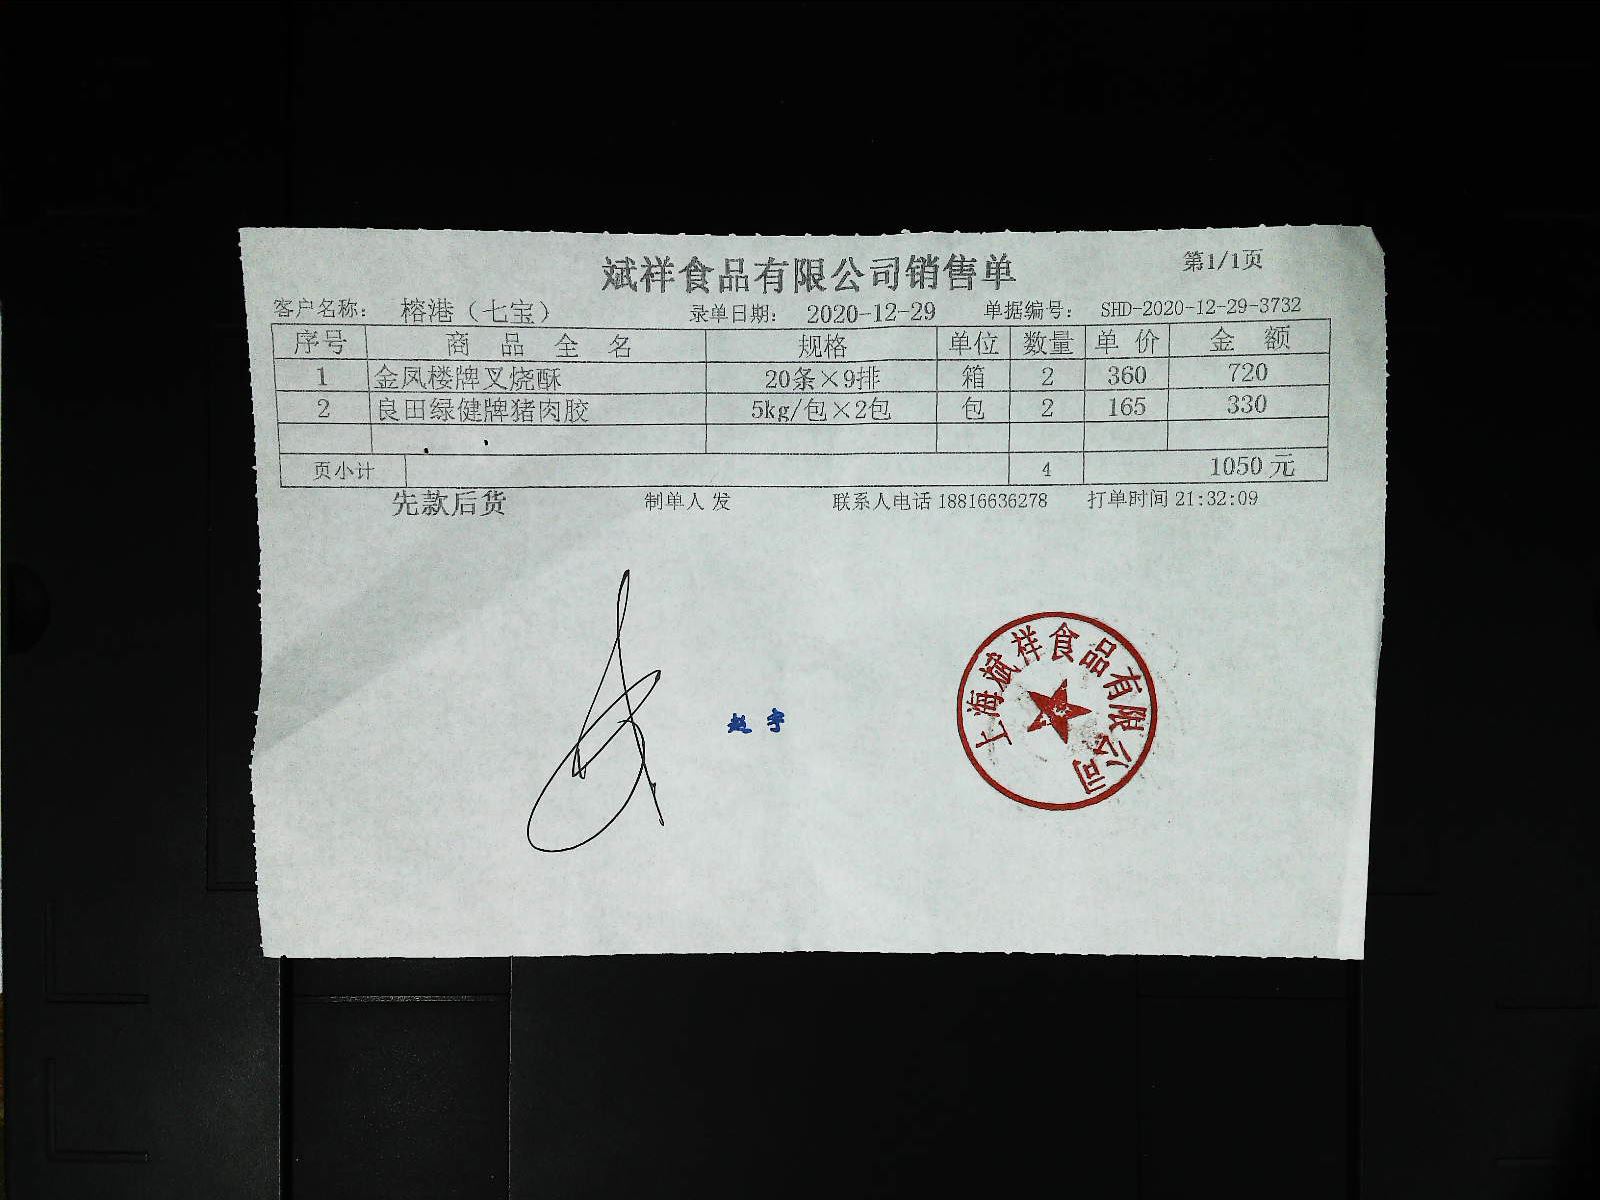 斌祥食品有限公司销售单
第1/1页
客户名称： 榕港（七宝） 录单日期： 2020-12-29 单据编号： SHD-2020-12-29-3732
序号 商品全名 规格 单位 数量 单价 金额
1 金凤楼牌叉烧酥 20条×9排 箱 2 360 720
2 良田绿健牌猪肉胶 5kg/包×2包 包 2 165 330
页小计 4 1050元
先款后货 制单人 发 联系人电话 18816636278 打单时间 21:32:09
赵宇
上海斌祥食品有限公司